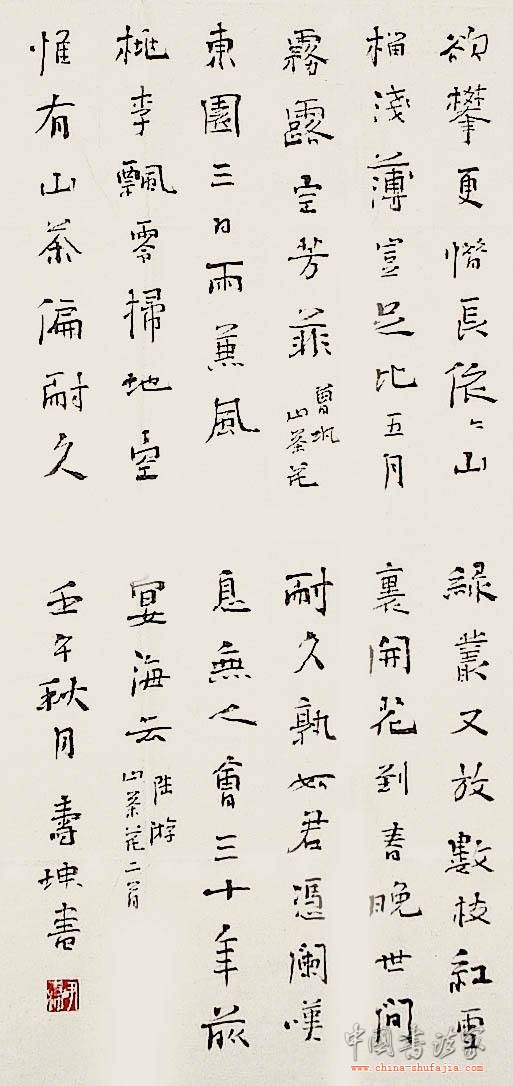 欲攀更惜長依々山
榴淺薄豈足比五月
霧露空芳菲
曾巩
山茶花
東園三日雨兼風
桃李飄零掃地空
惟有山茶偏耐久
綠叢又放數枝紅雪
裏開花到春晚世間
耐久孰如君憑闌嘆
息無人會三十年前
宴海云
陸游
山茶花二首
壬午秋月壽坤書
中国书法家
www.china-shufajia.com